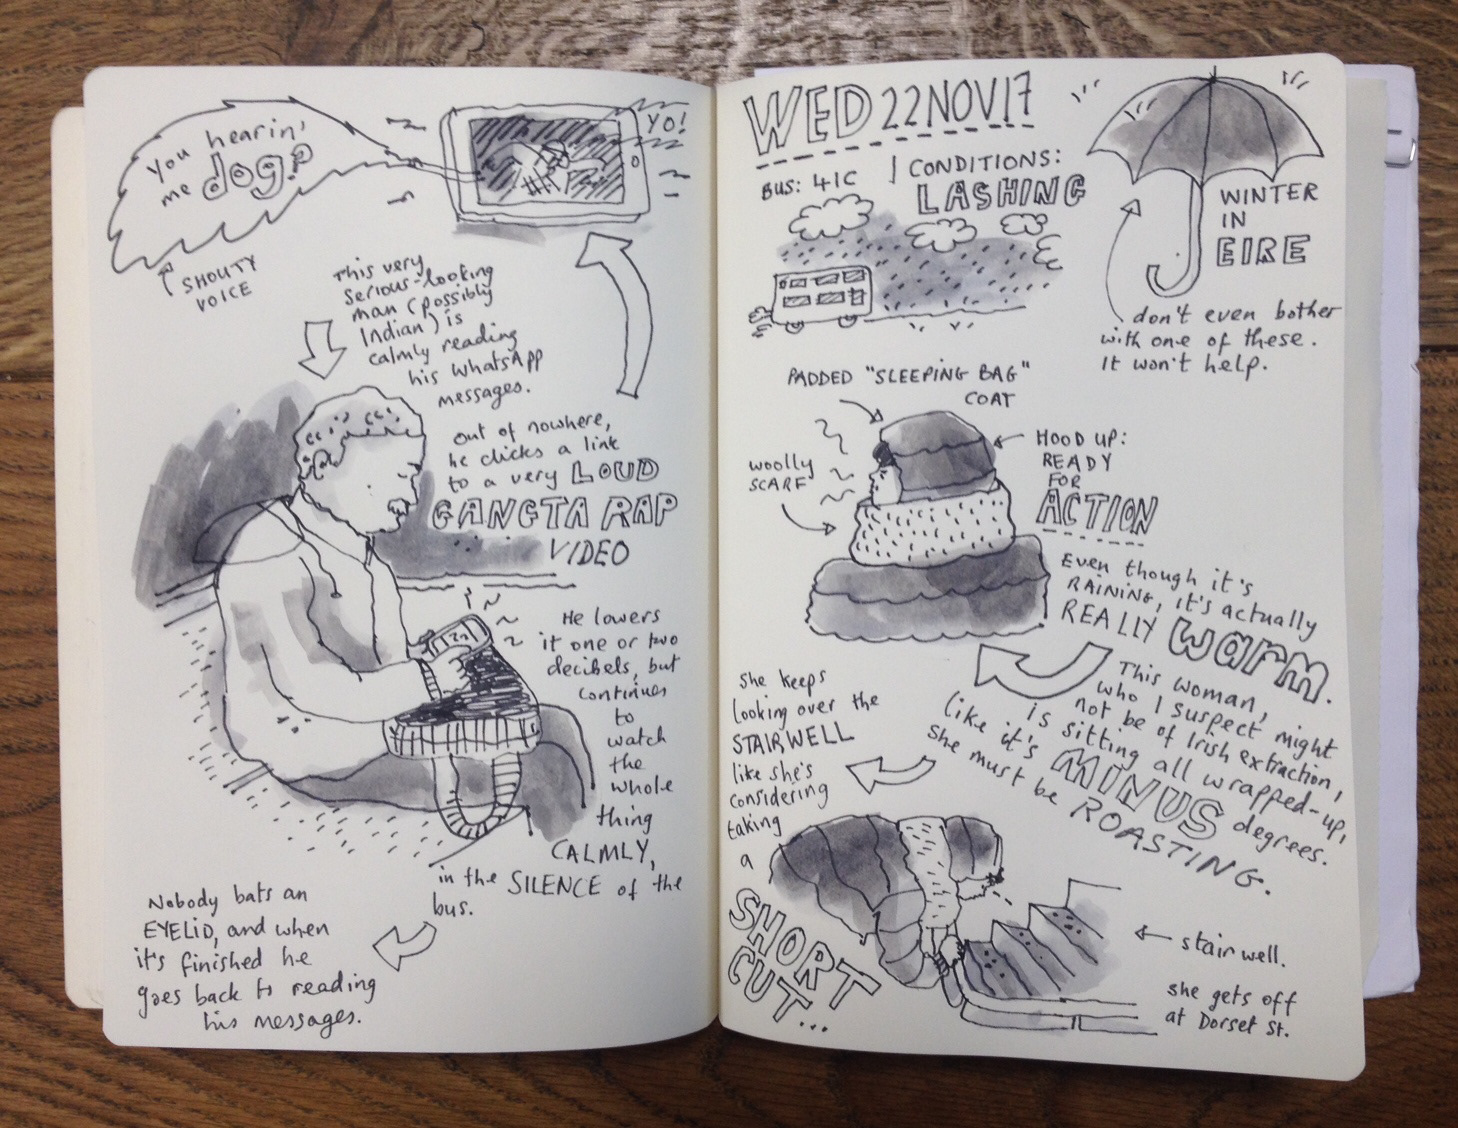 You hearin'
me dog?
SHOUTY
VOICE
YO!
This very
serious-looking
man (possibly
Indian) is
calmly reading
his WhatsApp
messages.
out of nowhere,
he clicks a link
to a very LOUD
GANGTA RAP
VIDEO
He lowers
it one or two
decibels, but
continues
to
watch
the
whole
thing
CALMLY,
in the SILENCE of the
bus.
Nobody bats an
EYELID, and when
it's finished he
goes back to reading
his messages.
WED 22NOV17
BUS: 41C
CONDITIONS:
LASHING
WINTER
IN
EIRE
don't even bother
with one of these.
It won't help.
PADDED "SLEEPING BAG"
COAT
WOOLLY
SCARF
HOOD UP:
READY
FOR
ACTION
Even though it's
RAINING, it's actually
REALLY warm.
This woman,
who I suspect might
not be of Irish extraction,
is sitting all wrapped-up,
like it's MINUS degrees.
she must be ROASTING.
she keeps
looking over the
STAIRWELL
like she's
considering
taking
a
SHORT
CUT...
stairwell.
she gets off
at Dorset St.